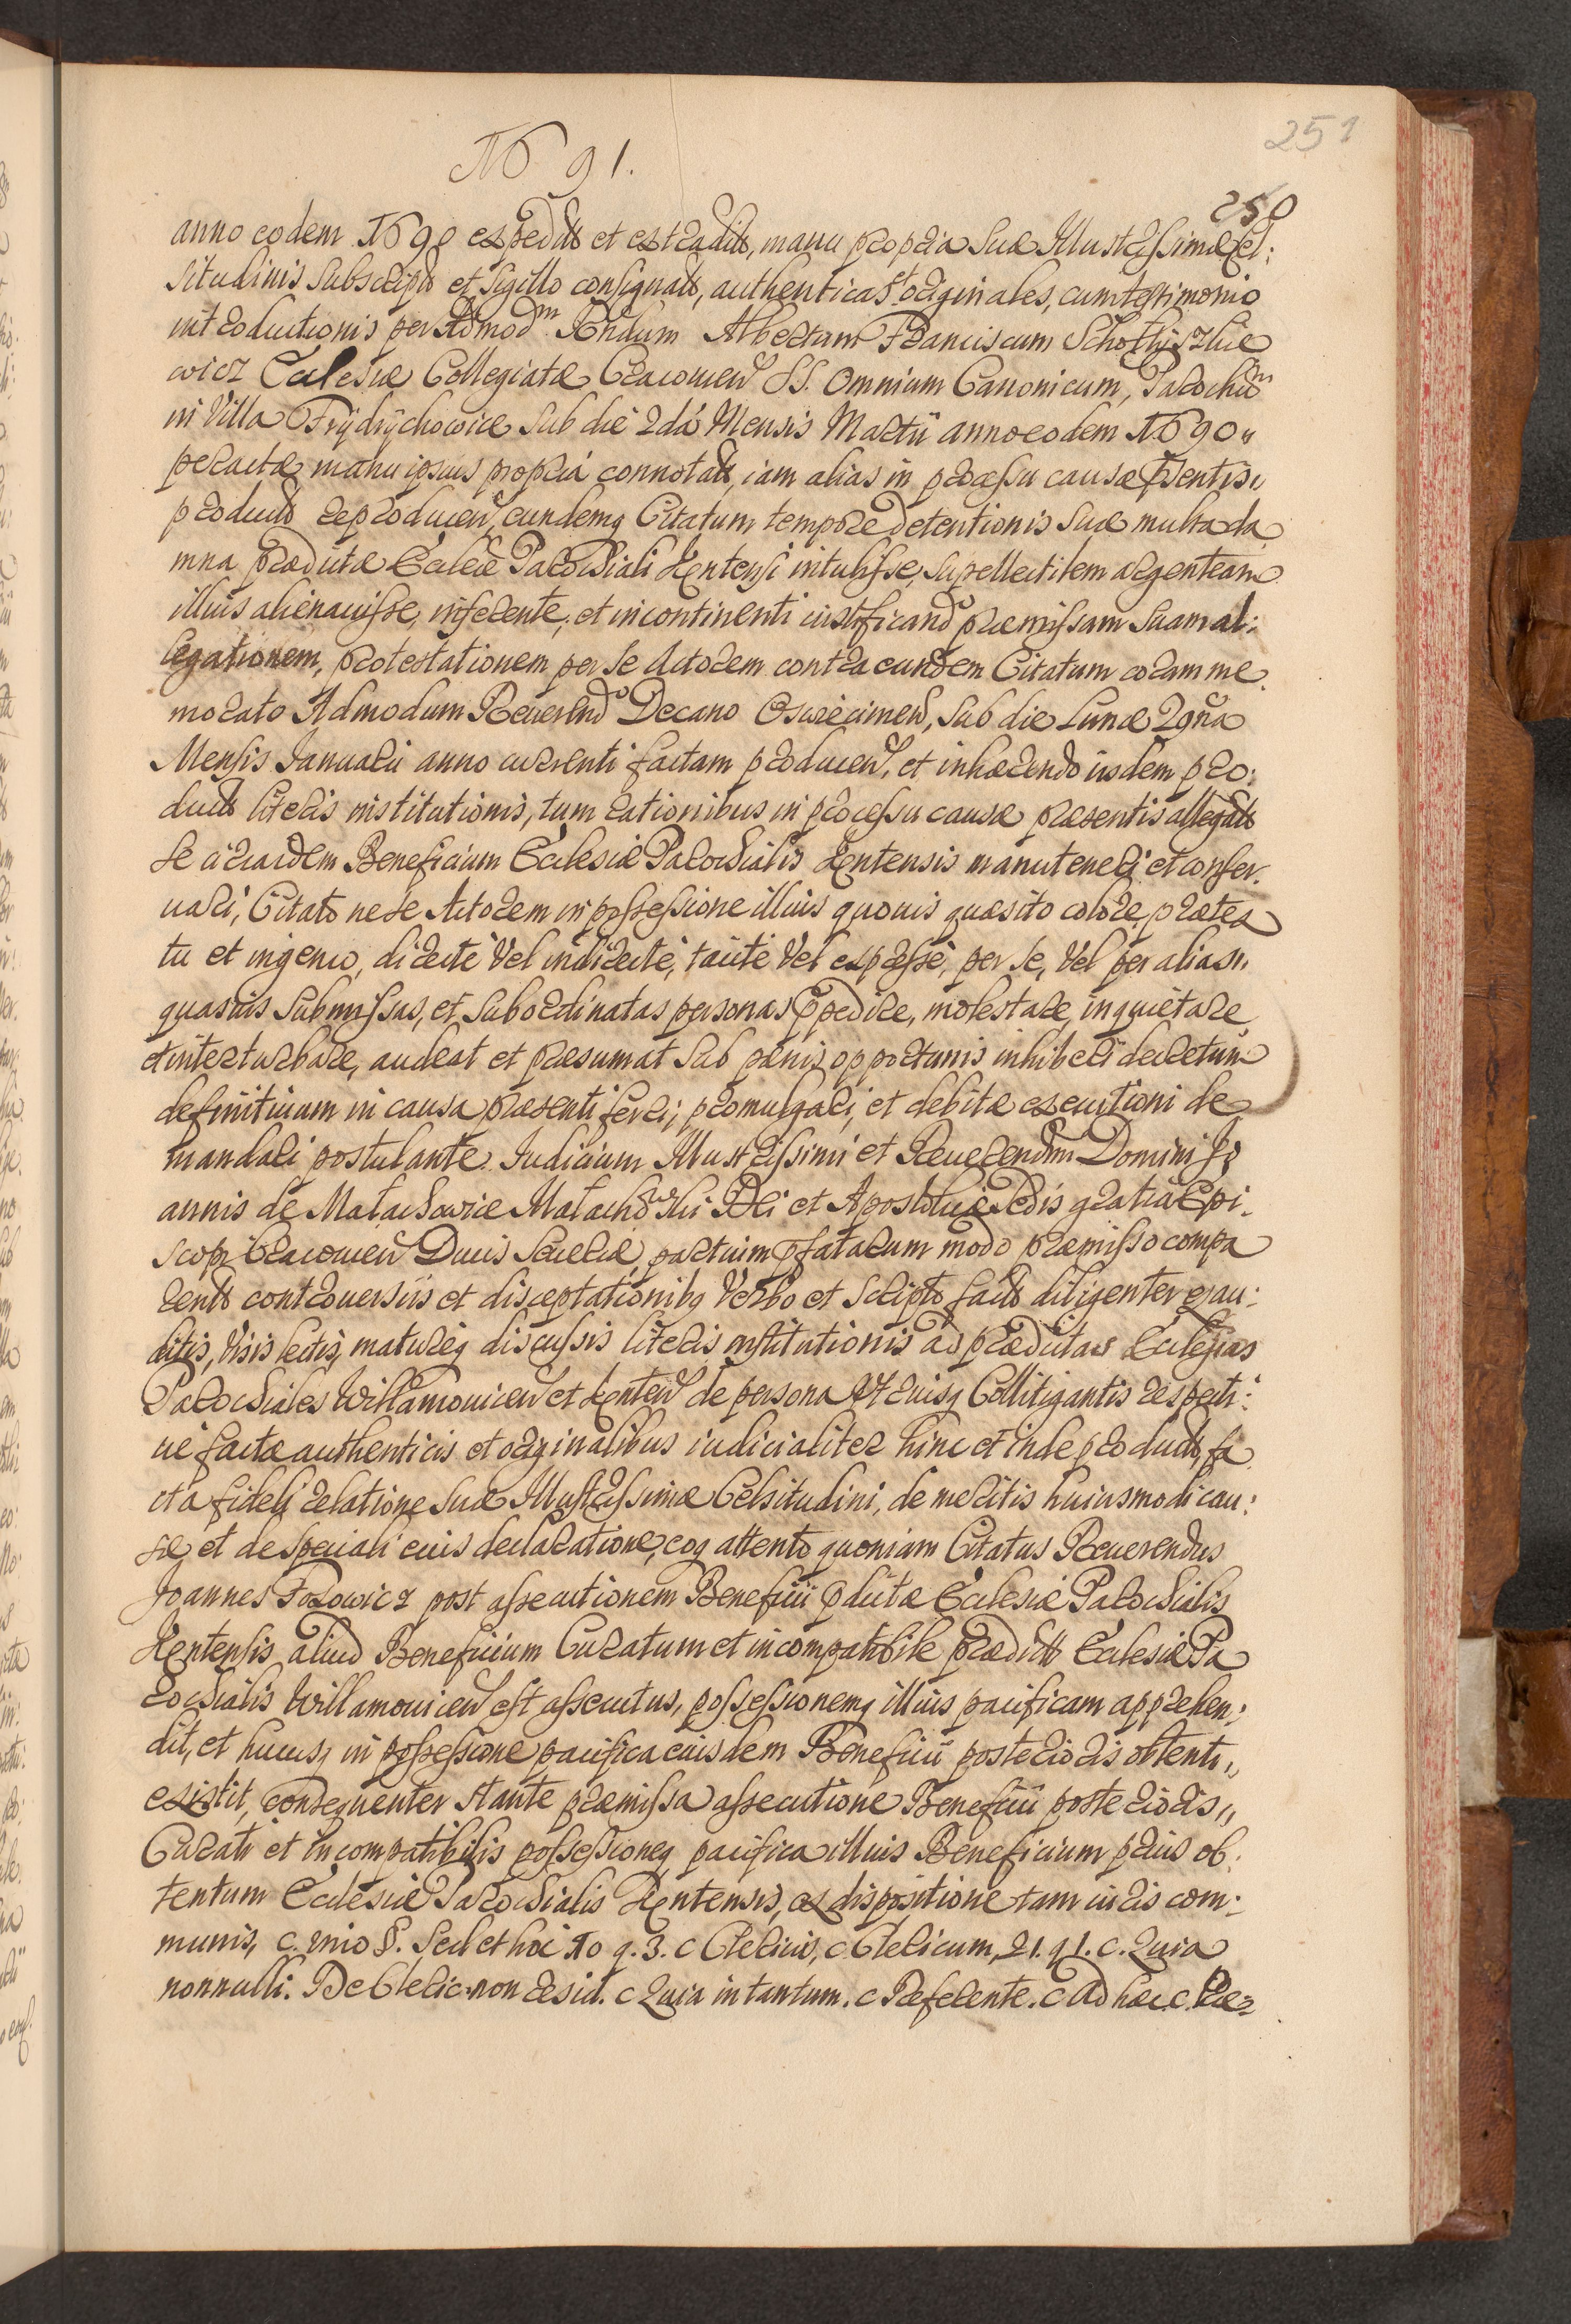 251
1691.
250
anno eodem 1690 expeditis et extraditis, manu propria Suæ Illustrissimæ Cel:
situdinis Subscriptis et Sigillo consignatis, authenticas et originales, cum testimonio
introductionis per Admodm Rndum Albertum Franciscum
wicz Ecclesiæ Collegiatæ Cracovien SS. Omnium Canonicum, Parochum
in Villa Frÿdrÿchowice Sub die 2da Mensis Martii anno eodem 1690
peractæ manu ipsius propria connotatis, iam alias in processu causæ pſentis
productis reproducen, eundemq Citatum tempore detentionis Suæ multa da
mna prædictæ Ecclæ Parochiali Kentensi intulisse, Supellectilem argenteam
illius alienavisse, inferente, et incontinenti iustificando præmissam Suam al:
legationem, protestationem per Se Actorem contra eundem Citatum coram me
morato Admodum Reverendo Decano Oswiecimen, Sub die Lunæ 29na
Mensis Januarii anno currenti factam producen, et inhærendo iisdem pro:
ductis literis institutionis, tum rationibus in processu causæ præsentis allegatis
Se circa idem Beneficium Ecclesiæ Parochialis Kentensis manuteneri et conser:
uari, Citato ne Se Actorem in possessione illius quouis quæsito colore, prætex
tu et ingenio, directe Vel indirecte, tacite Vel expresse, per Se, Vel per alias
quasuis Submissas, et Subordinatas personas impedire, molestare, inquietare,
et interturbare, audeat et præsumat Sub pænis opportunis inhiberi decretum
definitiuum in causa præsenti ferri, promulgari, et debitæ executioni de
mandari postulante. Iudicium Illustrissimi et Reverendmi Domini Jo
annis de Małachowice Małachowski Dei et Apostolicæ Sedis gratia Epi:
scopi Cracovien Ducis Severiæ, partium pfatarum modo præmisso compa
rentis controuersiis et disceptationibq Verbo et Scripto factis diligenter exau:
ditis, Visis lectis, matureq discussis literis institutionis ad prædictas Ecclesias
Parochiales Willamovicen et Kenten de persona Vtriusq Collitigantis respecti:
ue factæ authenticis et originalibus iudicialiter hinc et inde productis, fa
cta fideli relatione Suæ Illustrissimæ Celsitudini, de meritis huiusmodi cau:
sæ, et de Speciali eius declaratione, eoq attento quoniam Citatus Reuerendus
Joannes post assecutionem Beneficii pdictæ Ecclesiæ Parochialis
Kentensis aliud Beneficium Curatum et incompatibile prædictæ Ecclesiæ Pa
rochialis Willamovicen est assecutus, possessionemq illius pacificam apprehen:
dit, et hucusq in possessione pacifica eiusdem Beneficii posterioris obtenti
existit, consequenter stante præmissa assecutione Beneficii posterioris
Curati et incompatibilis possessioneq pacifica illius Beneficium prius ob:
tentum Ecclesiæ Parochialis Kentensis, ex dispositione tam iuris com:
munis, c. vnio §. Sed et hoc 10 q. 3. c Clericus, c Clericum, 21. q 1. c. Quia
nonnulli. De Cleric. non resid. c Quia in tantum. c Referente. c Ad hæc. c. Præ=